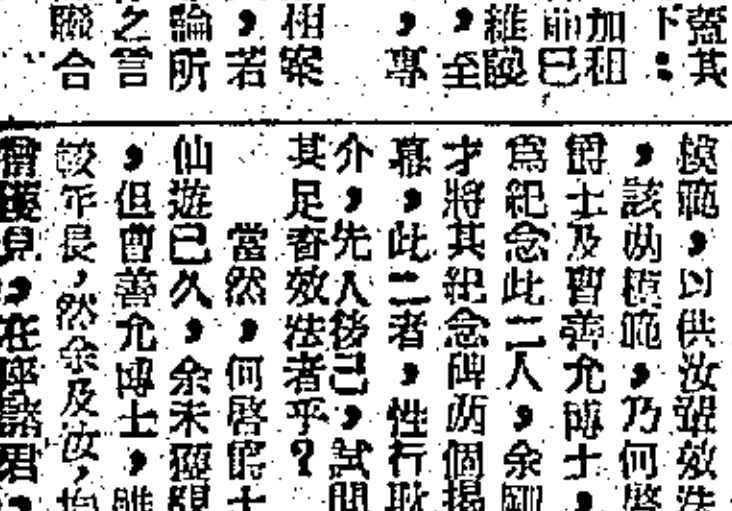 蓋其
下：
加租
前已
維護
，至
，專
相案
，若
論所
之言
聯合
模範，以供汝輩效法
，該兩模範，乃何啓
爵士及曹善允博士，
爲紀念此二人，余剛
才將其紀念碑兩個揭
幕，此二者，性行耿
介，先人後己，試問
其足資效法者乎？
當然，何啓爵士
仙遊已久，余未獲親
，但曹善允博士，雖
較年長，然余及汝，
見，在座諸君，